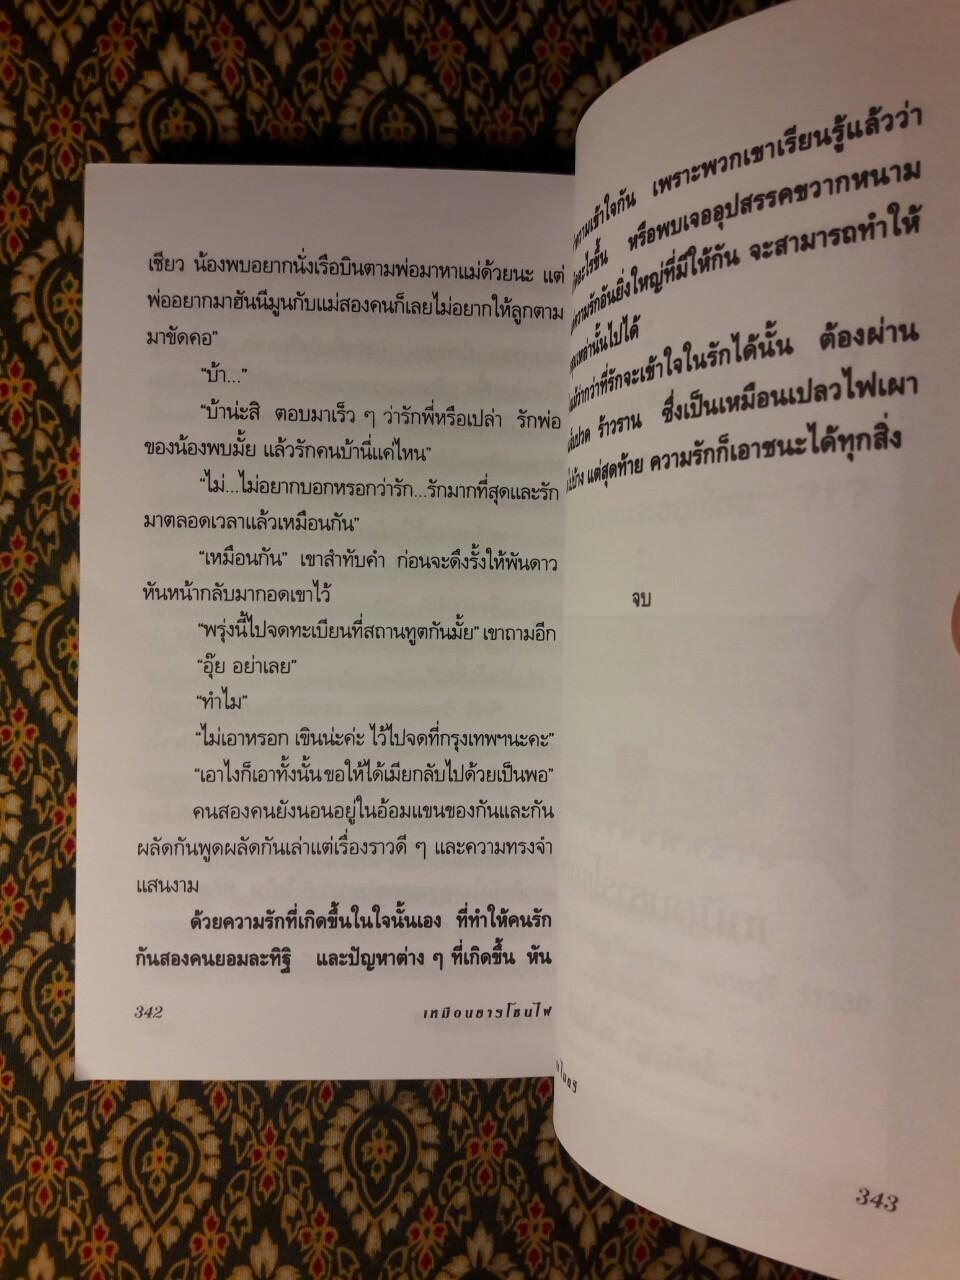 เชียว น้องพบอยากนั่งเรือบินตามพ่อมาหาแม่ด้วยนะ แต่
พ่ออยากมาฮันนีมูนกับแม่สองคนก็เลยไม่อยากให้ลูกตาม
มาขัดคอ”
“บ้า...”
“บ้าน่ะสิ ตอบมาเร็ว ๆ ว่ารักพี่หรือเปล่า รักพ่อ
ของน้องพบมั้ย แล้วรักคนบ้านี่แค่ไหน”
“ไม่...ไม่อยากบอกหรอกว่ารัก...รักมากที่สุดและรัก
มาตลอดเวลาแล้วเหมือนกัน”
“เหมือนกัน” เขาสำทับคำ ก่อนจะดึงรั้งให้พันดาว
หันหน้ากลับมากอดเขาไว้
“พรุ่งนี้ไปจดทะเบียนที่สถานทูตกันมั้ย” เขาถามอีก
“อุ๊ย อย่าเลย”
“ทำไม”
“ไม่เอาหรอก เขินน่ะค่ะ ไว้ไปจดที่กรุงเทพฯนะคะ”
“เอาไงก็เอาทั้งนั้น ขอให้ได้เมียกลับไปด้วยเป็นพอ”
คนสองคนยังนอนอยู่ในอ้อมแขนของกันและกัน
ผลัดกันพูดผลัดกันเล่าแต่เรื่องราวดี ๆ และความทรงจำ
แสนงาม
ด้วยความรักที่เกิดขึ้นในใจนั้นเอง ที่ทำให้คนรัก
กันสองคนยอมละทิฐิ และปัญหาต่าง ๆ ที่เกิดขึ้น หัน
342
เหมือนธารโชนไฟ
ความเข้าใจกัน เพราะพวกเขาเรียนรู้แล้วว่า
อะไรขึ้น หรือพบเจออุปสรรคขวากหนาม
ความรักอันยิ่งใหญ่ที่มีให้กัน จะสามารถทำให้
เหล่านั้นไปได้
กว่าที่รักจะเข้าใจในรักได้นั้น ต้องผ่าน
ร้าวราน ซึ่งเป็นเหมือนเปลวไฟเผา
บ้าง แต่สุดท้าย ความรักก็เอาชนะได้ทุกสิ่ง
จบ
343